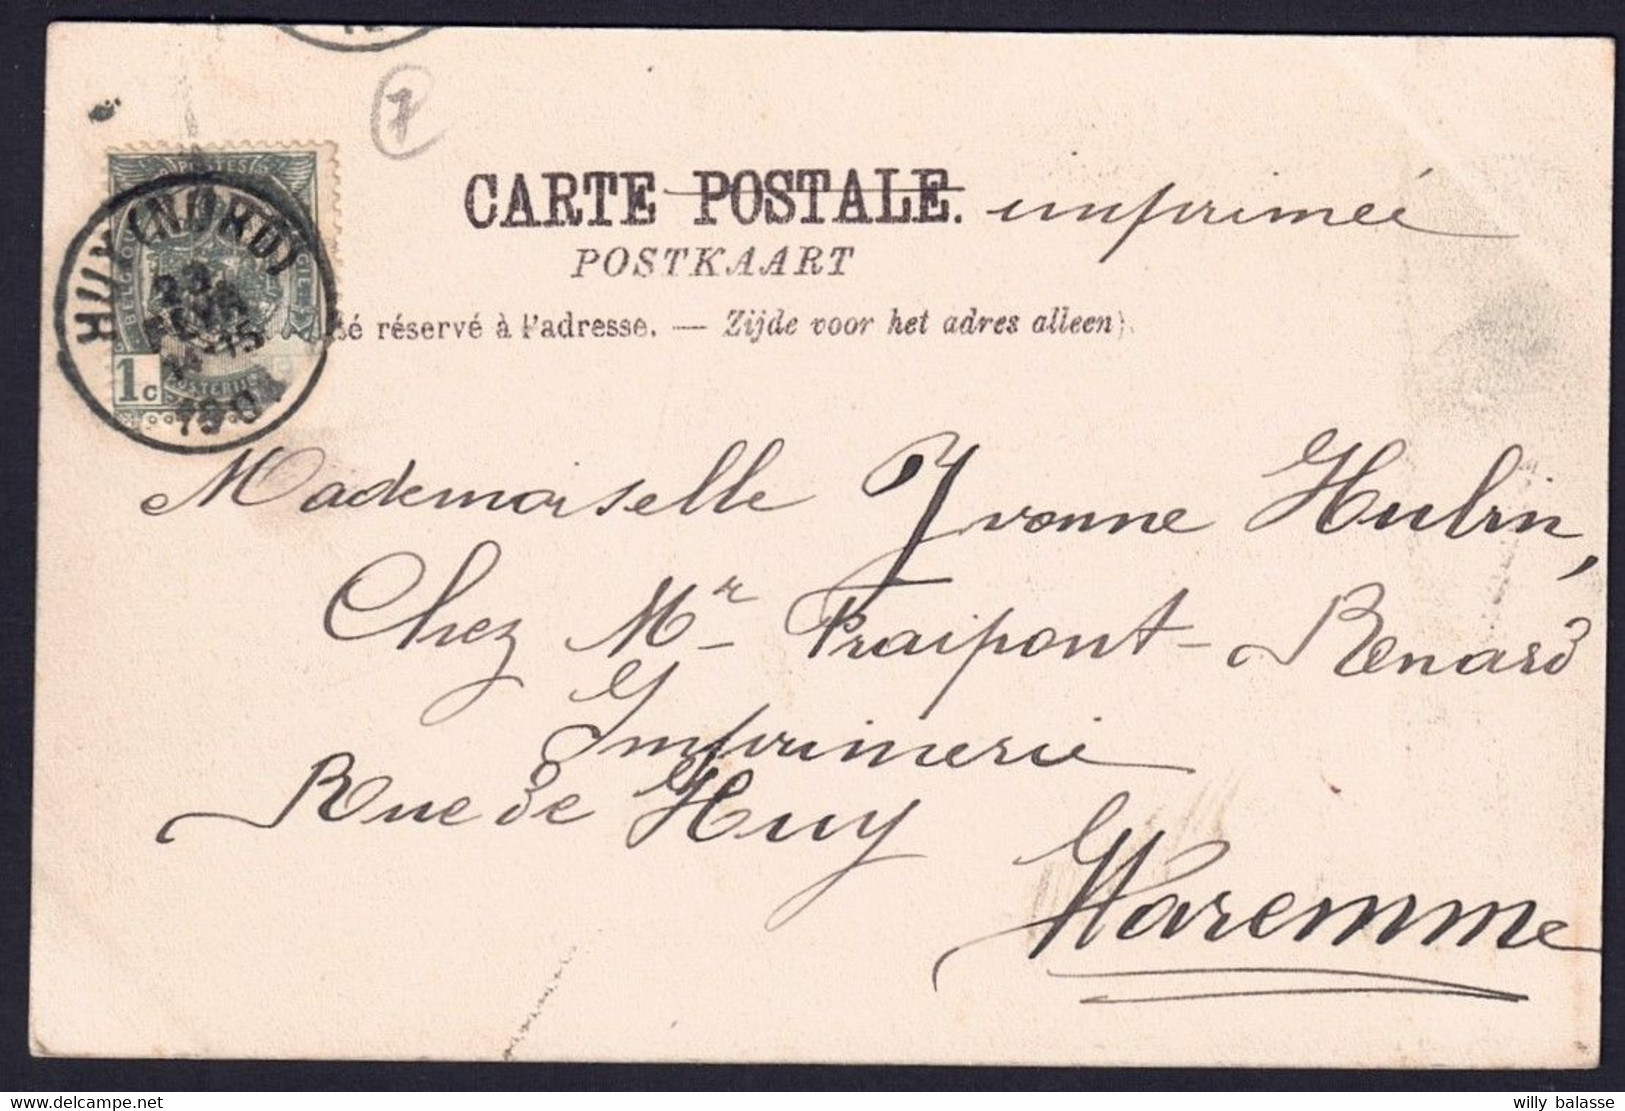 7
CARTE POSTALE. imprimée
POSTKAART
é réservé à l'adresse. — Zijde voor het adres alleen).
POSTES
HUY (NORD)
23
FEVR
15
1904
1c
Mademoiselle Yvonne Hubin,
Chez Mr Fraipont-Renard
Imprimerie
Rue de Huy
Waremme
willy balasse